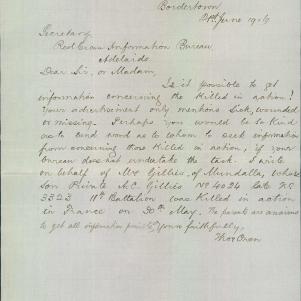 Bordertown
21st June 1916
Secretary
Red Cross Information Bureau
Adelaide
Dear Sir, or Madam,
Is it possible to get
information concerning the killed in action?
Your advertisement only mentions Sick, wounded
or missing. Perhaps you would be so kind
as to send word as to whom to seek information
from concerning those killed in action, if your
bureau does not undertake the task. I write
on behalf of Mr Gillies, of Mundalla, whose
son Private A.C. Gillies No 4024 late No
3323 11th Battalion was killed in action
in France on 30th May. The parents are anxious
to get all information possible. Yours faithfully,